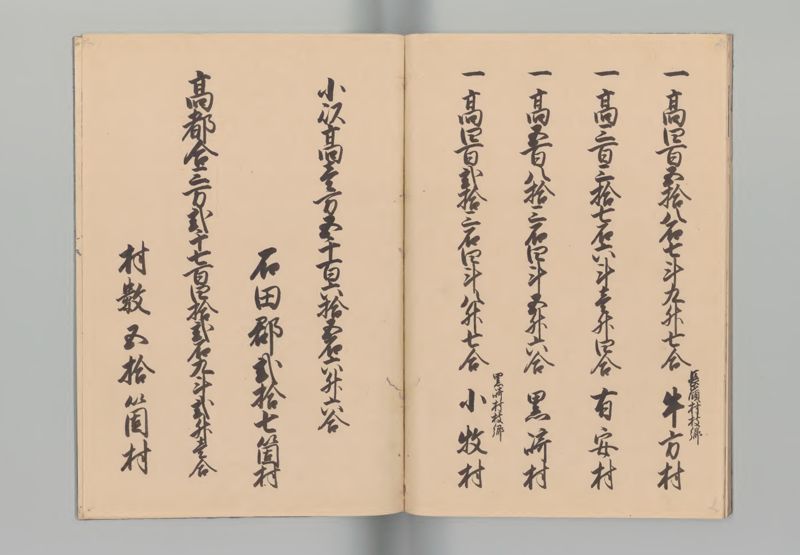 一高四百五拾八石七斗九升七合 長嶺村枝郷 牛方村
一高三百三拾七石六斗壱升四合 有安村
一高五百八拾三石四斗五升六合 黒崎村
一高四百弐拾三石四斗八升七合 黒崎村枝郷 小牧村
小以高壱万五千百六拾五石六升六合
石田郡弐拾七箇村
高都合三万弐千七百四拾弐石九斗弐升壱合
村数五拾箇村